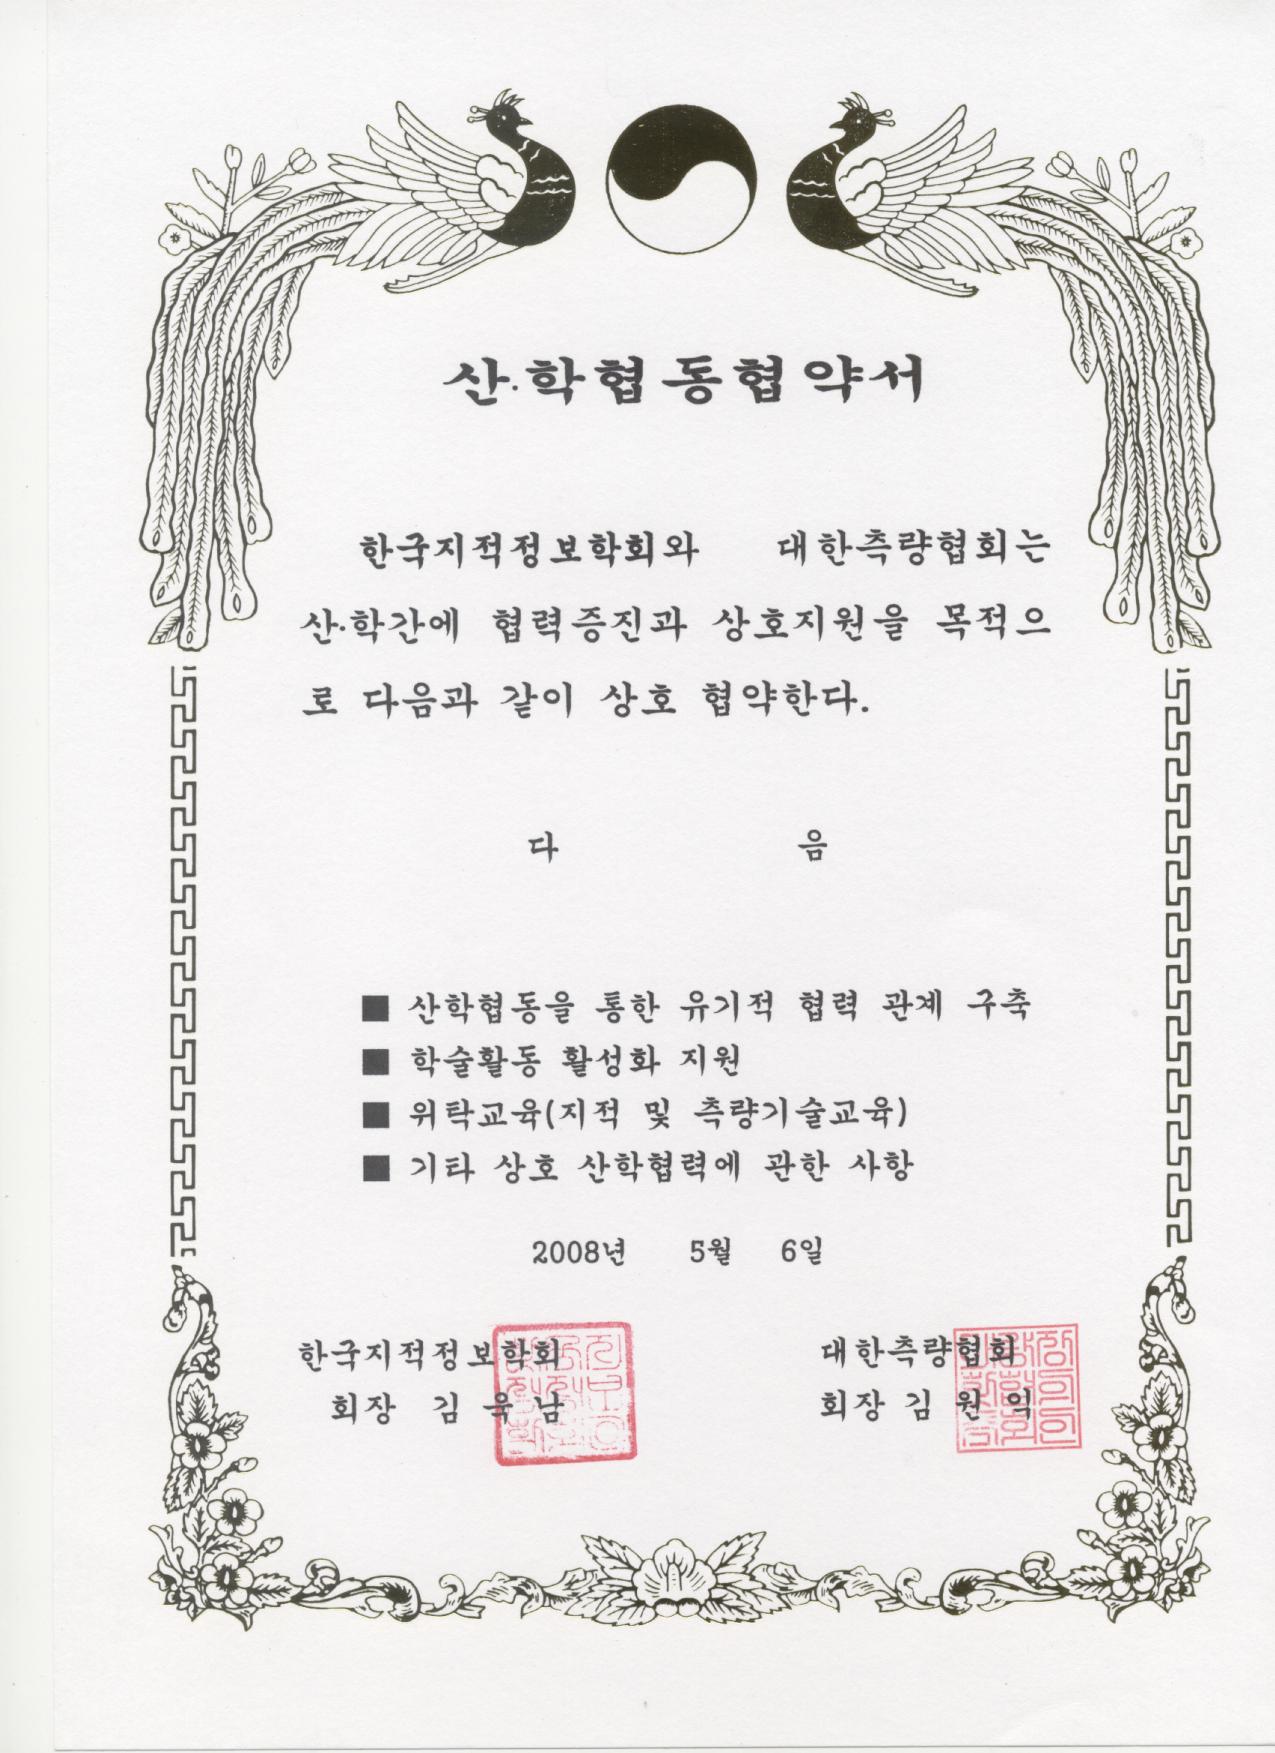 산·학협동협약서
한국지적정보학회와 대한측량협회는
산·학간에 협력증진과 상호지원을 목적으
로 다음과 같이 상호 협약한다.
다 음
■ 산학협동을 통한 유기적 협력 관계 구축
■ 학술활동 활성화 지원
■ 위탁교육(지적 및 측량기술교육)
■ 기타 상호 산학협력에 관한 사항
2008년 5월 6일
한국지적정보학회 대한측량협회
회장 김 욱 남 회장 김 원 익